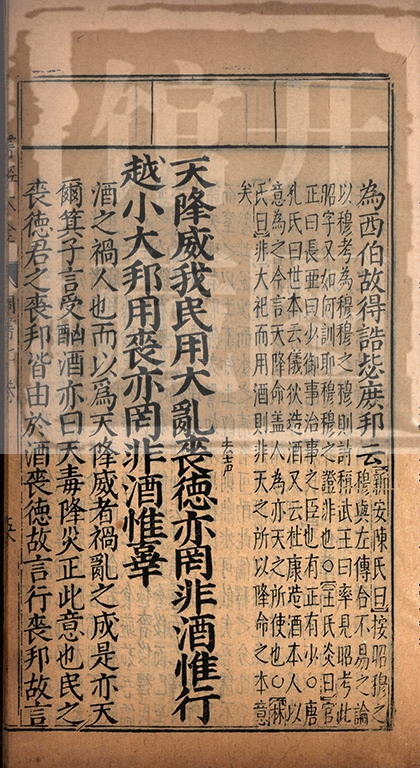 為西伯故得誥毖庶邦云
新安陳氏曰按昭穆之
穆與左傳合不易之論
以穆考為穆穆之穆則詩稱武王曰率見昭考此
昭字又如何訓耶穆穆之證非也○王氏炎曰官
正曰長亞曰少御事治事之臣也有正有少○唐
孔氏曰世本云儀狄造酒又云杜康造酒本人以
意為之今言天降命盖人為亦天之所使也○林
氏曰非大祀而用酒則非天之所以降命之本意
矣
天降威我民用大亂喪德亦罔非酒惟行
越小大邦用喪亦罔非酒惟辜
酒之禍人也而以爲天降威者禍亂之成是亦天
爾箕子言受酗酒亦曰天毒降災正此意也民之
喪德君之喪邦皆由於酒喪德故言行喪邦故言